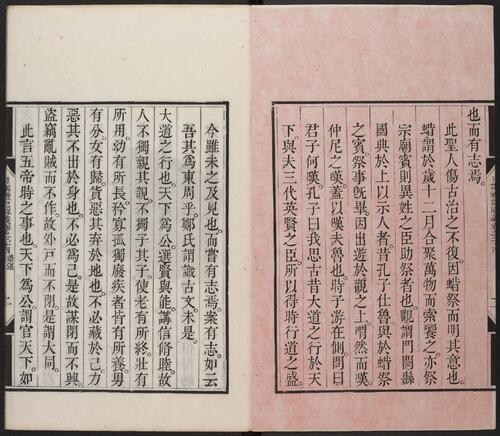 也而有志焉。
此聖人傷古治之不復。因蜡祭而明其意也。
蜡謂於歲十二月合聚萬物而索饗之。亦祭
宗廟賓則異姓之臣助祭者也。觀謂門闕縣
國典於上以示人者昔孔子仕魯與於蜡祭
之賓。祭事旣畢。因出遊於觀之上。喟然而嘆。
仲尼之嘆。蓋以嘆夫魯也。時子游在側。問曰
君子何嘆。孔子曰我思古昔大道之行於天
下。與夫三代英賢之臣。所以得時行道之盛。
今雖未之及見也。而嘗有志焉。案有志。如云
吾其爲東周乎。鄭氏謂識古文未是。
大道之行也。天下爲公。選賢與能。講信脩睦。故
人不獨親其親。不獨子其子。使老有所終。壯有
所用。幼有所長。矜寡孤獨廢疾者皆有所養。男
有分。女有歸。貨惡其弃於地也。不必藏於己。力
惡其不出於身也。不必爲己。是故謀閉而不興。
盜竊亂賊而不作。故外戶而不閉。是謂大同。
此言五帝時之事也。天下爲公。謂官天下。如